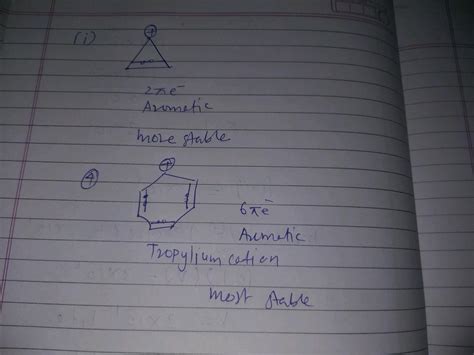 (i)
+
2πe⁻
Aromatic
more stable
④
+
6πe⁻
Aromatic
Tropylium cation
most stable